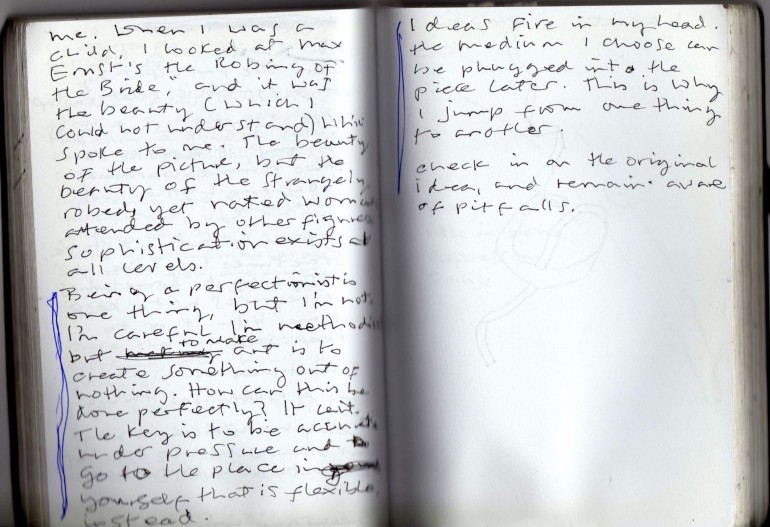 me. When I was a
child, I looked at Max
Ernst's the Robing of
the Bride," and it was
the beauty (which I
could not understand) which
spoke to me. The beauty
of the picture, but the
beauty of the strangely
robed, yet naked woman
attended by other figures
Sophistication exists at
all levels.
Being a perfectionist is
one thing, but I'm not.
I'm careful, I'm methodic
but to make art is to
create something out of
nothing. How can this be
done perfectly? It can't.
The key is to be accurate
under pressure and to
go to the place in
yourself that is flexible,
instead.
Ideas fire in my head.
the medium I choose can
be plugged into the
piece later. This is why
I jump from one thing
to another.
check in on the original
idea, and remain aware
of pitfalls.